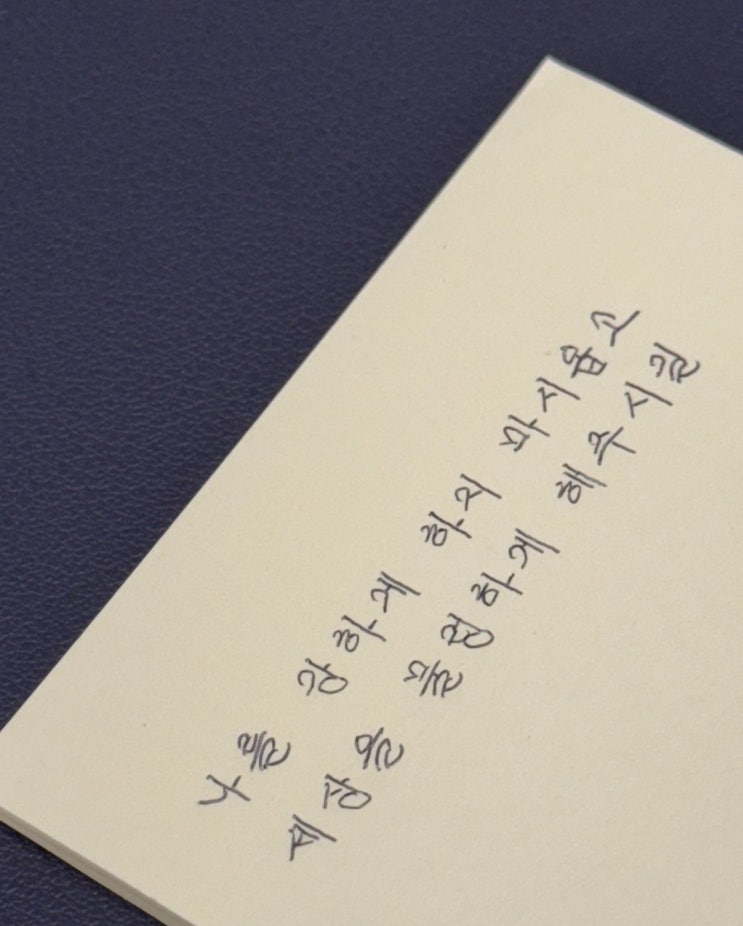 나를 강하게 하지 마시옵고
세상을 물렁하게 해주시길